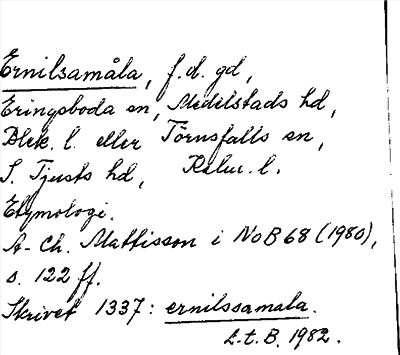 Ernilsamåla, f.d. gd,
Eringsboda sn, Medelstads hd,
Blek. l. eller Törnsfalls sn,
S. Tjusts hd, Kalm. l.
Etymologi.
A-Ch. Mattisson i NoB 68 (1980),
s. 122 ff.
Skrivet 1337: ernilssamala.
L.t.B. 1982.